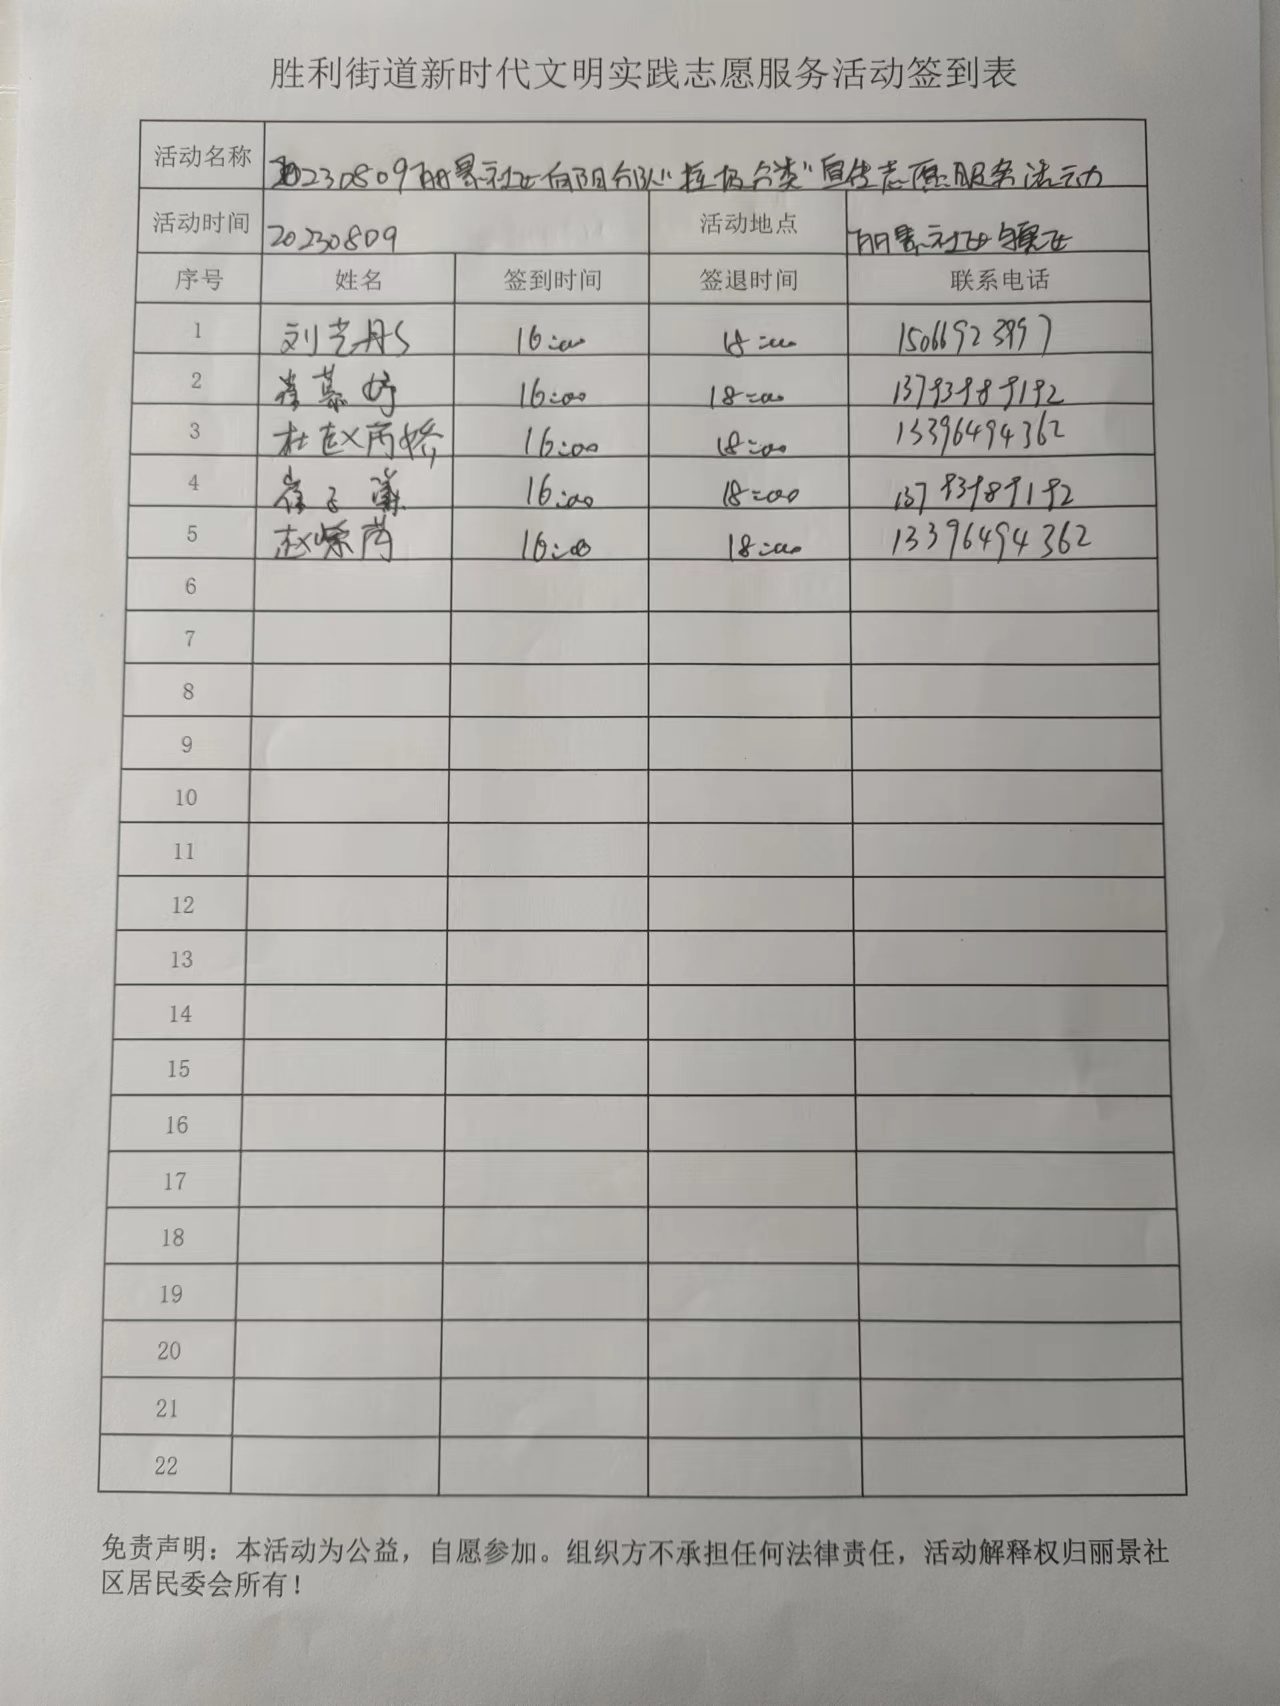 胜利街道新时代文明实践志愿服务活动签到表
活动名称 20230809丽景社区向阳分队“垃圾分类”宣传志愿服务活动
活动时间 20230809 活动地点 丽景社区辖区
序号 姓名 签到时间 签退时间 联系电话
1 刘艺丹 16:00 18:00 15066923997
2 崔慕婷 16:00 18:00 13793989192
3 杜赵芮娇 16:00 18:00 13396494362
4 崔子涵 16:00 18:00 13793989192
5 赵荣芮 16:00 18:00 13396494362
6
7
8
9
10
11
12
13
14
15
16
17
18
19
20
21
22
免责声明：本活动为公益，自愿参加。组织方不承担任何法律责任，活动解释权归丽景社
区居民委会所有！